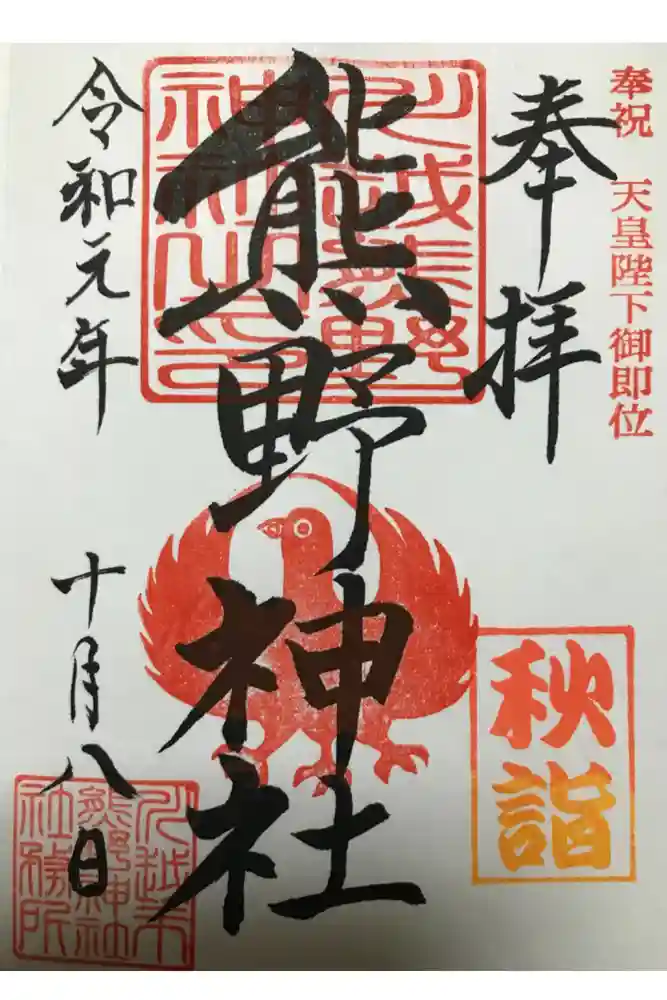 奉祝 天皇陛下御即位
奉拝
秋詣
川越熊野
神社之印
熊野神社
令和元年
十月八日
川越市
熊野神社
社務所